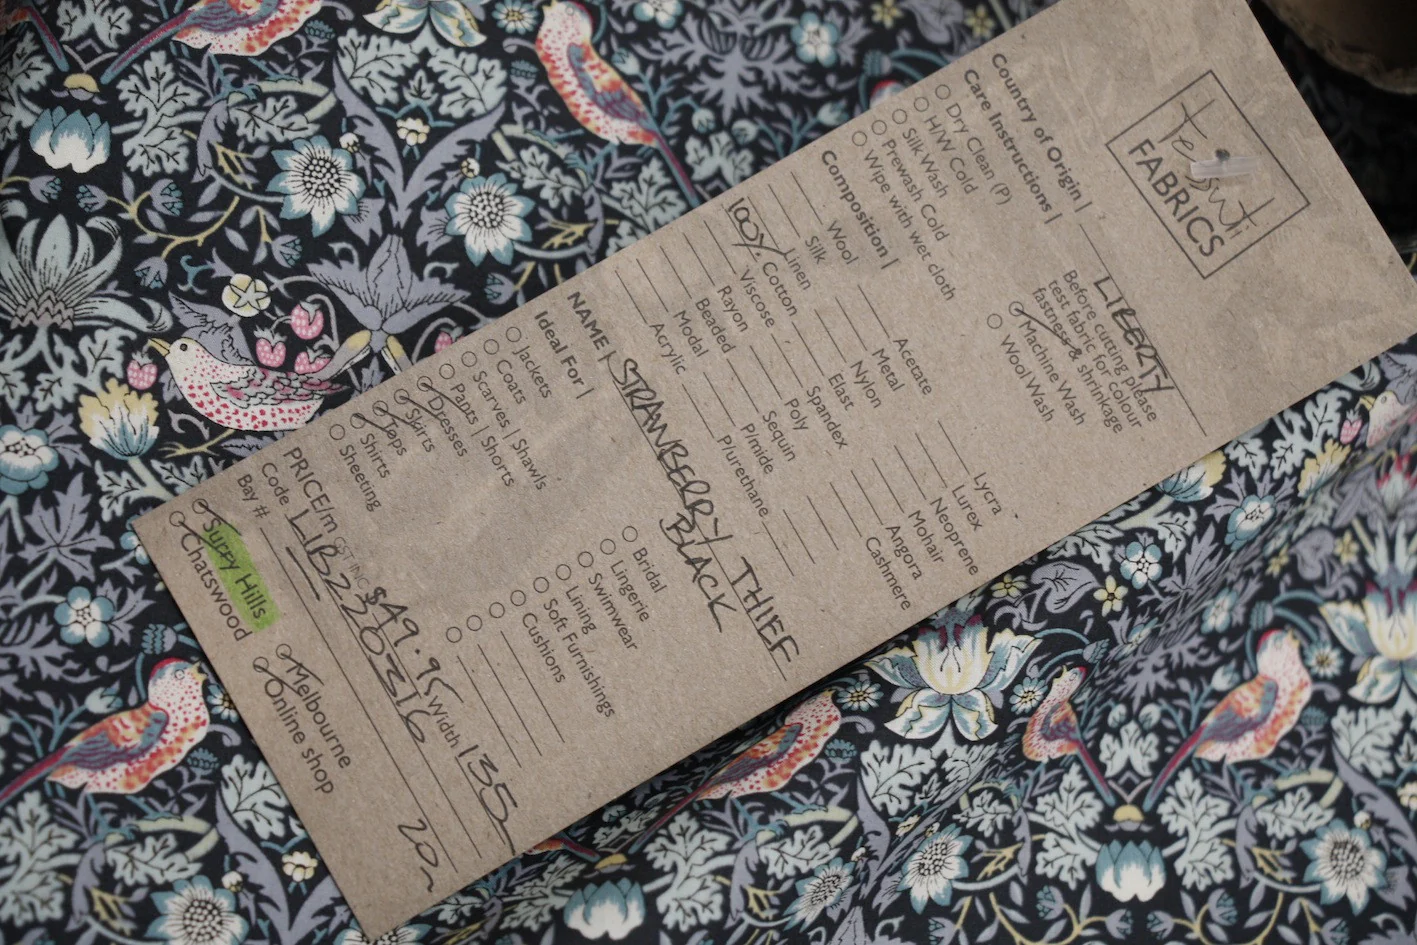 Tessuti
FABRICS
Country of Origin | LIBERTY
Care Instructions |
Before cutting please
test fabric for colour
fastness & shrinkage
Dry Clean (P)
H/W Cold
Silk Wash
Prewash Cold
Wipe with wet cloth
Machine Wash
Wool Wash
Composition |
Wool
Silk
Linen
100% Cotton
Viscose
Rayon
Beaded
Modal
Acrylic
Acetate
Metal
Nylon
Elast
Spandex
Poly
Sequin
P/mide
P/urethane
Lycra
Lurex
Neoprene
Mohair
Angora
Cashmere
NAME | STRAWBERRY THIEF
BLACK
Ideal For |
Jackets
Coats
Scarves | Shawls
Pants | Shorts
Dresses
Skirts
Tops
Shirts
Sheeting
Bridal
Lingerie
Swimwear
Lining
Soft Furnishings
Cushions
PRICE/m GST INC $49.95 Width 135
Code LIB220316
Bay # 20
Surry Hills
Chatswood
Melbourne
Online shop